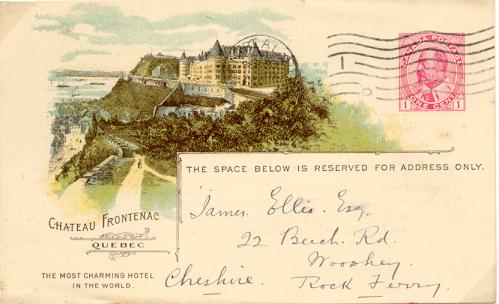 CANADA POSTAGE
1 1
ONE CENT
THE SPACE BELOW IS RESERVED FOR ADDRESS ONLY.
James Ellis Esq.
22 Beech Rd.
Rock Ferry.
Cheshire.
CHATEAU FRONTENAC
QUEBEC
THE MOST CHARMING HOTEL
IN THE WORLD.